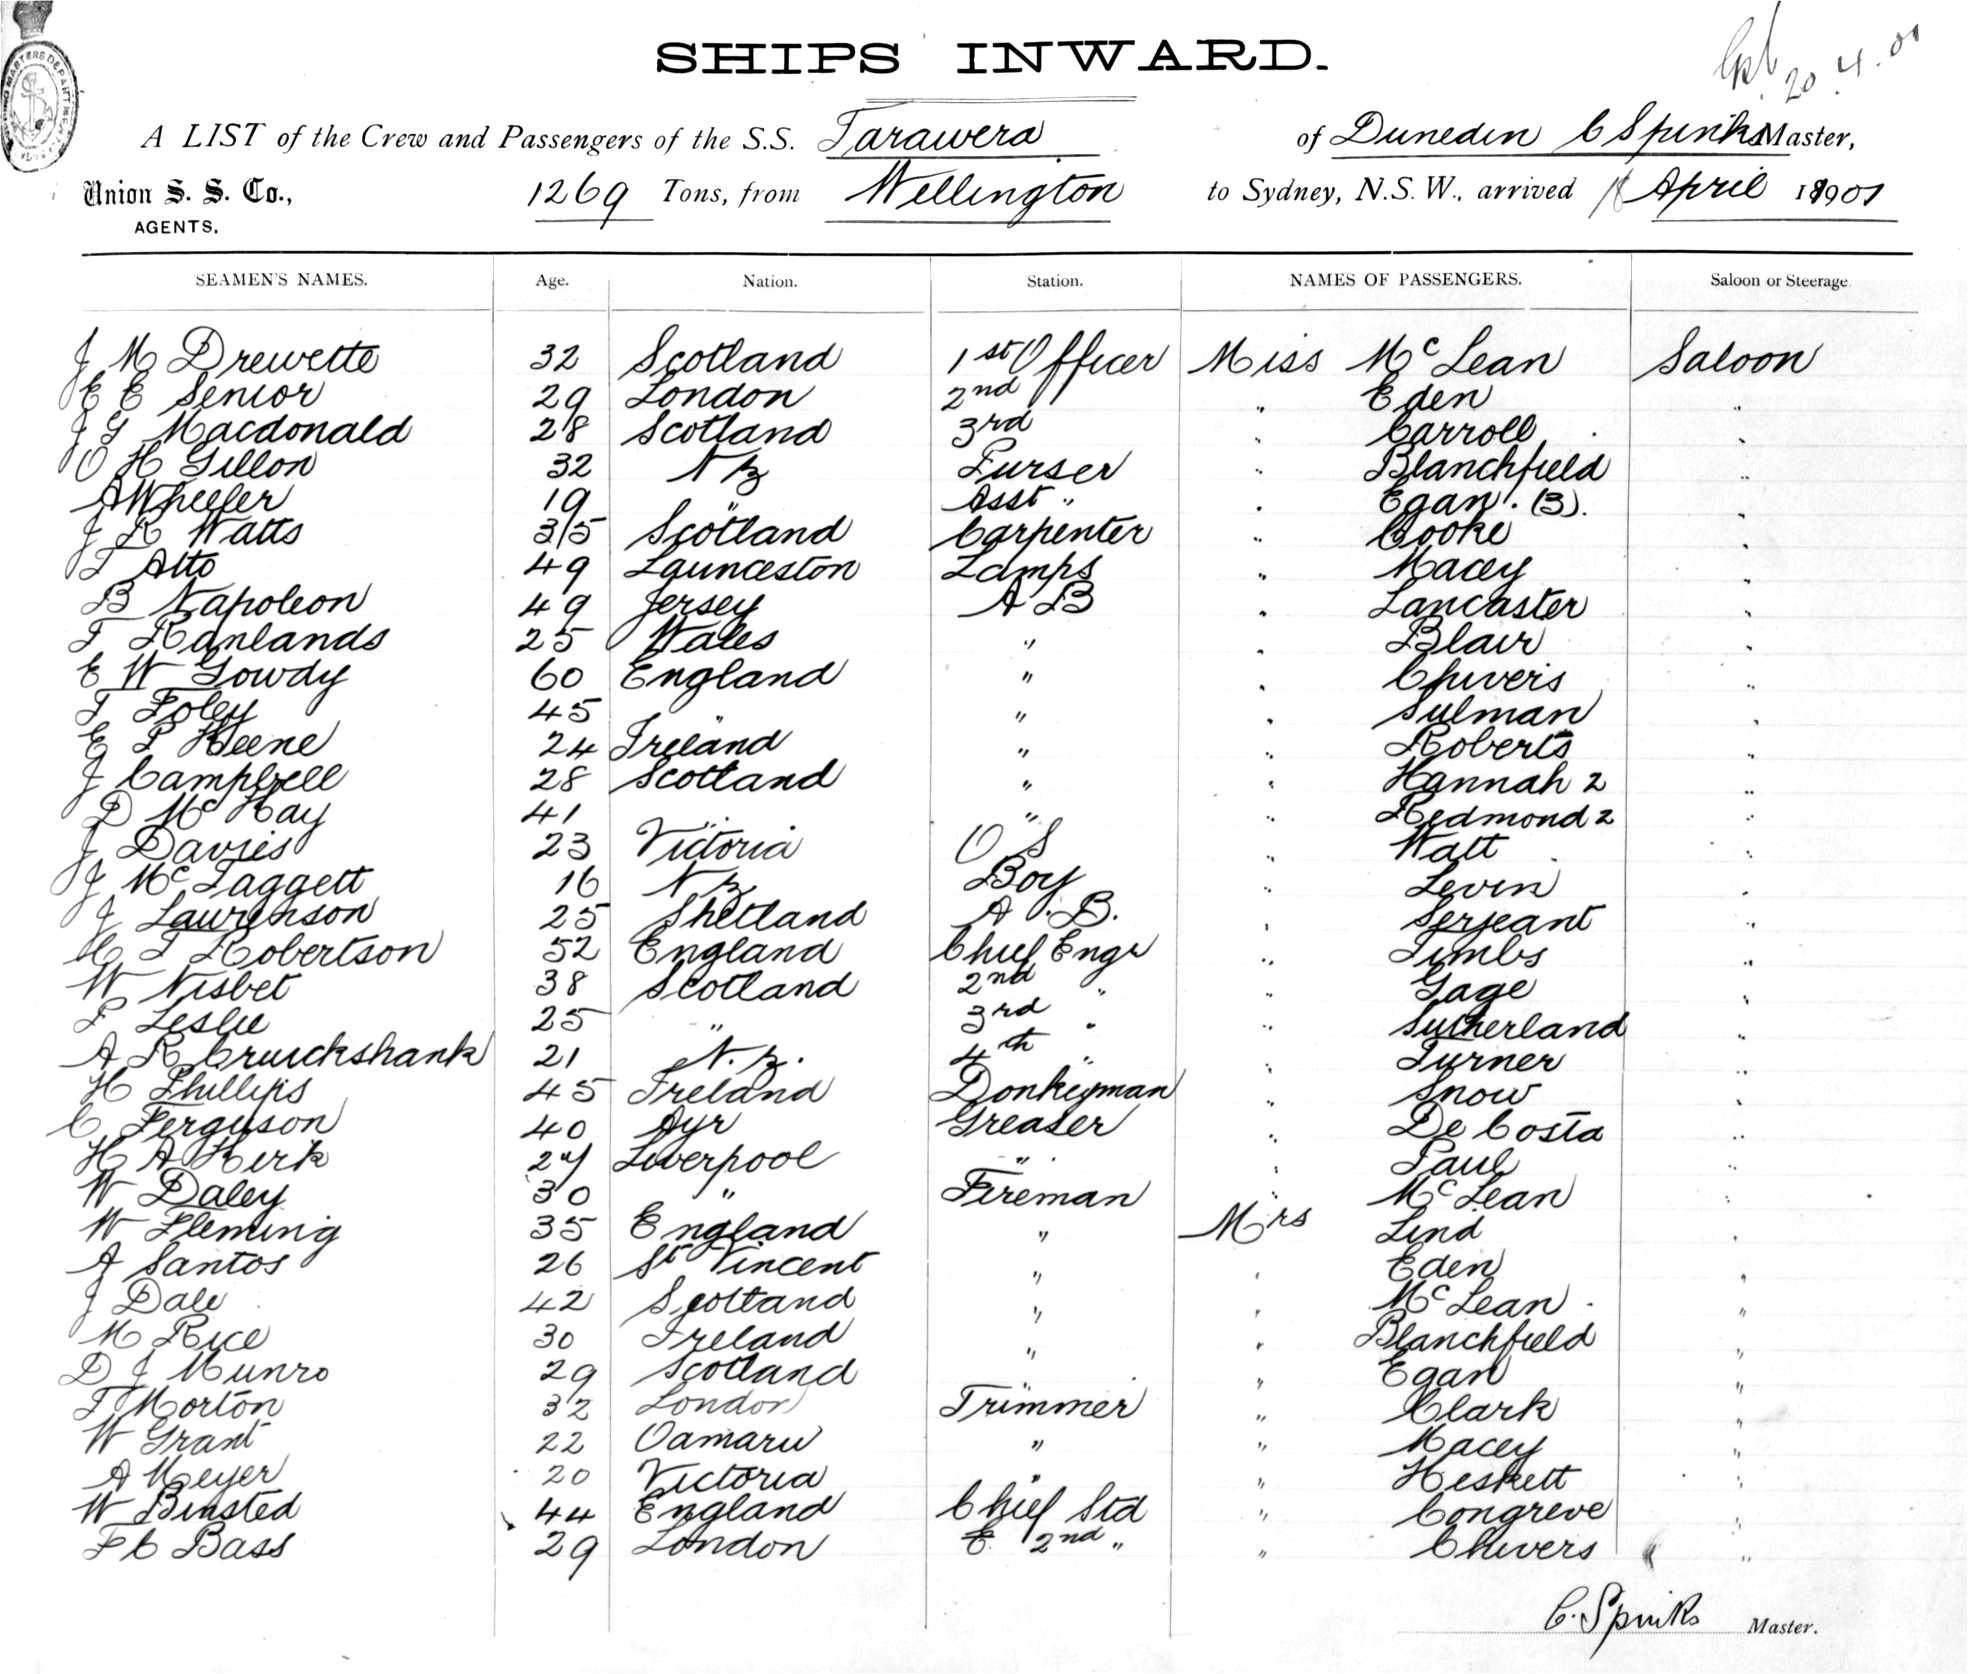 SHIPS INWARD.
20.4.01
A LIST of the Crew and Passengers of the S.S. Tarawera of Dunedin C Spinks Master,
Union S. S. Co., 1269 Tons, from Wellington to Sydney, N.S.W., arrived 18 April 1901
AGENTS.
SEAMEN'S NAMES. Age. Nation. Station. NAMES OF PASSENGERS. Saloon or Steerage
J M Drewette 32 Scotland 1st Officer Miss McLean Saloon
E E Senior 29 London 2nd " Eden "
J G Macdonald 28 Scotland 3rd " Carroll "
O H Gillon 32 N Z Purser " Blanchfield "
A Wheeler 19 " Asst " " Egan. (3). "
J R Watts 35 Scotland Carpenter " Cooke "
T Alto 49 Launceston Lamps " Macey "
B Napoleon 49 Jersey A B " Lancaster "
T Ranlands 25 Wales " " Blair "
E W Gowdy 60 England " " Chivers "
T Foley 45 " " " Sulman "
E P Keene 24 Ireland " " Roberts "
J Campbell 28 Scotland " " Hannah 2 "
D McKay 41 " " " Redmond 2 "
J Davies 23 Victoria O S " Watt "
J McTaggett 16 N Z Boy " Levin "
J Lawrenson 25 Shetland A.B. " Serjeant "
H T Robertson 52 England Chief Engr " Timbs "
W Nisbet 38 Scotland 2nd " " Gage "
P Leslie 25 " 3rd " " Sutherland "
A R Cruickshank 21 N.Z. 4th " " Turner "
H Phillips 45 Ireland Donkeyman " Snow "
C Ferguson 40 Ayr Greaser " De Costa "
H A Kirk 27 Liverpool " " Paul "
W Daley 30 " Fireman " McLean "
W Fleming 35 England " Mrs Lind "
J Santos 26 St Vincent " " Eden "
J Dale 42 Scotland " " McLean "
M Rice 30 Ireland " " Blanchfield "
D J Munro 29 Scotland " " Egan "
T Morton 32 London Trimmer " Clark "
W Grant 22 Oamaru " " Macey "
A Meyer 20 Victoria " " Heskett "
W Binsted 44 England Chief Std " Congreve "
F C Bass 29 London 2nd " " Chivers "
C. Spinks Master.